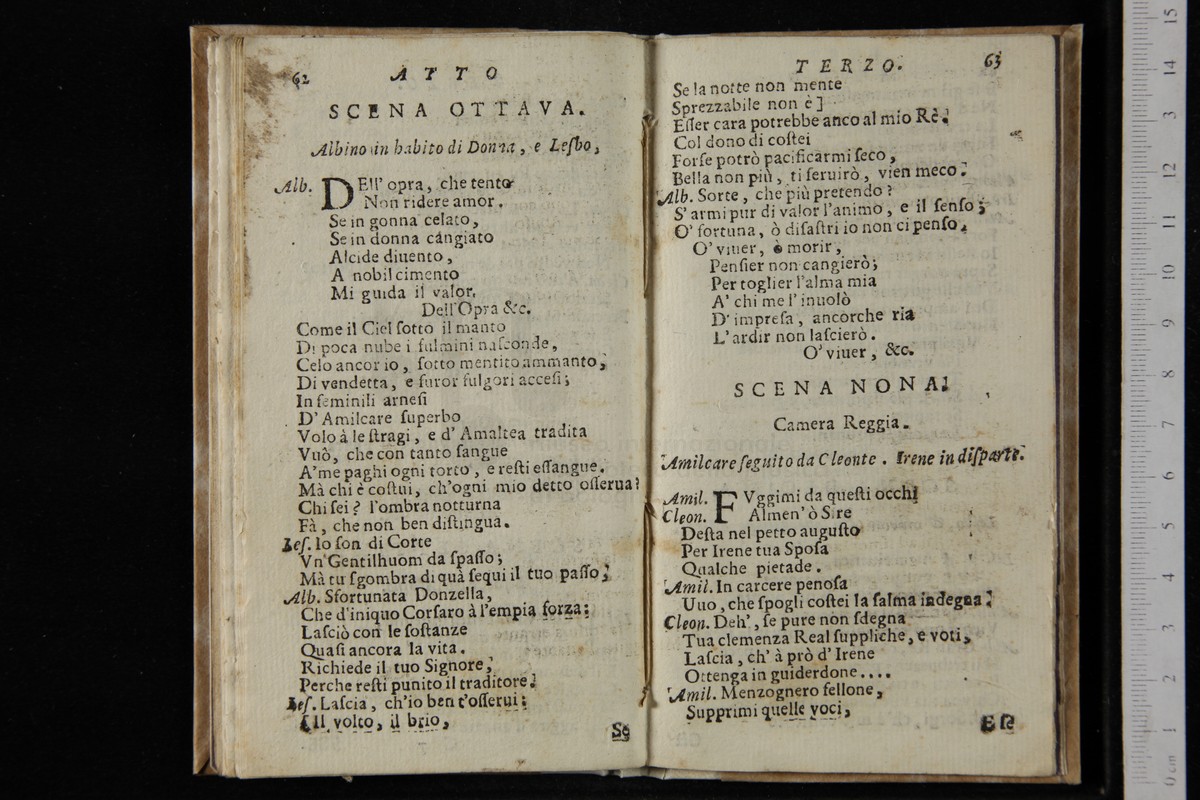 62
ATTO
SCENA OTTAVA.
Albino in habito di Donna, e Lesbo,
Alb. DEll' opra, che tento
Non ridere amor.
Se in gonna celato,
Se in donna cángiato
Alcide diuento,
A nobil cimento
Mi guida il valor.
Dell'Opra &c.
Come il Ciel ſotto il manto
Di poca nube i fulmini naſconde,
Celo ancor io, ſotto mentito ammanto,
Di vendetta, e furor fulgori acceſi;
In feminili arneſi
D' Amilcare ſuperbo
Volo à le ſtragi, e d' Amaltea tradita
Vuò, che con tanto ſangue
A' me paghi ogni torto, e reſti eſſangue.
Mà chi è coſtui, ch'ogni mio detto oſſerua?
Chi ſei? l'ombra notturna
Fà, che non ben diſtingua.
Leſ. Io ſon di Corte
Vn Gentilhuom da ſpaſſo;
Mà tu ſgombra di quà ſequi il tuo paſſo;
Alb. Sfortunata Donzella,
Che d'iniquo Corſaro à l'empia forza;
Laſciò con le ſoſtanze
Quaſi ancora la vita.
Richiede il tuo Signore,
Perche reſti punito il traditore.
Leſ. Laſcia, ch'io ben t'oſſerui;
[Il volto, il brio,
Se
TERZO.
63
Se la notte non mente
Sprezzabile non è]
Eſſer cara potrebbe anco al mio Rè.
Col dono di coſtei
Forſe potrò pacificarmi ſeco,
Bella non più, ti ſeruirò, vien meco.
Alb. Sorte, che più pretendo?
S' armi pur di valor l'animo, e il ſenſo;
O' fortuna, ò diſaſtri io non ci penſo.
O' viuer, ò morir,
Penſier non cangierò;
Per toglier l'alma mia
A' chi me l' inuolò
D' impreſa, ancorche ria
L' ardir non laſcierò.
O' viuer, &c.
SCENA NONA.
Camera Reggia.
Amilcare ſeguito da Cleonte. Irene in diſparte.
Amil. FVggimi da queſti occhi
Cleon. Almen' ò Sire
Deſta nel petto auguſto
Per Irene tua Spoſa
Qualche pietade.
Amil. In carcere penoſa
Uuo, che ſpogli coſtei la ſalma indegna.
Cleon. Deh', ſe pure non ſdegna
Tua clemenza Real ſuppliche, e voti,
Laſcia, ch' à prò d' Irene
Ottenga in guiderdone....
Amil. Menzognero fellone,
Supprimi quelle voci,